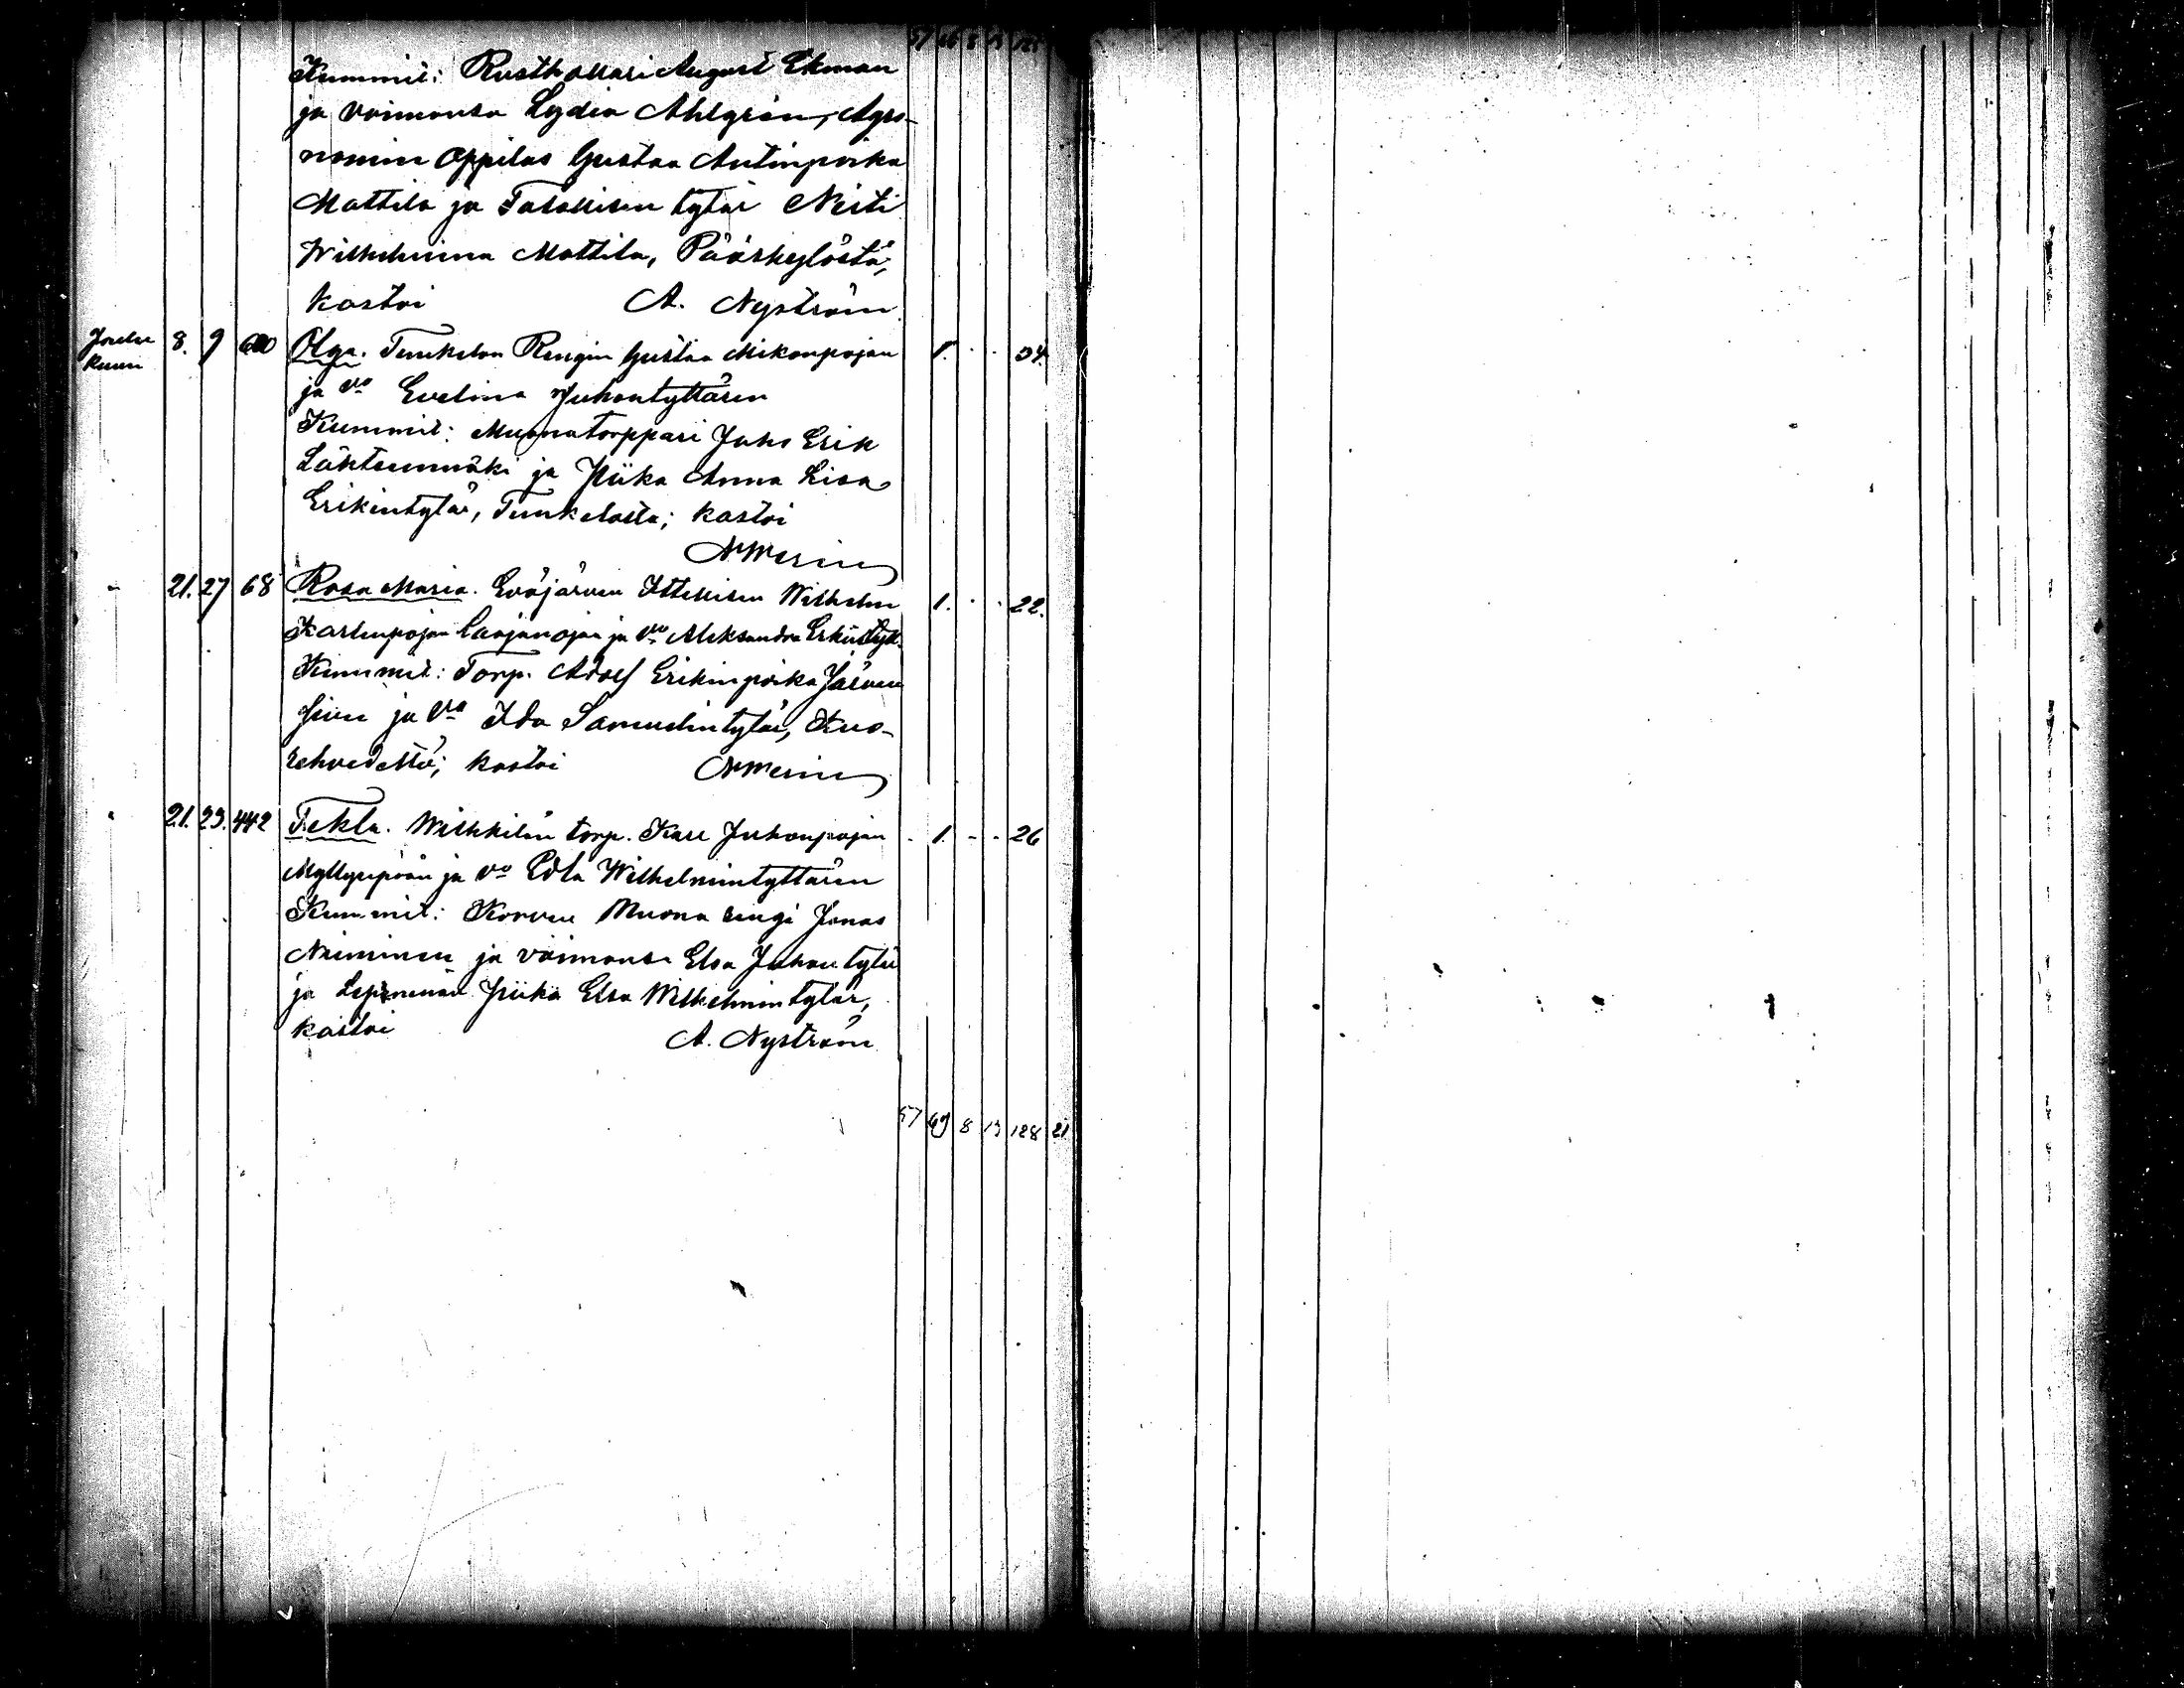 57 66 8 13
Kummit: Rusthollari August Ekman
ja vaimonsa Lydia Ahlgrén, Agro-
nomin Oppilas Gustaa Antinpoika
Mattila ja Talollisen tytär Neiti
Wilhelmina Mattila, Pääskylästä;
kastoi A. Nyström
Joulu 8. 9 600 Olga. Tunkelon Rengin Gustaa Mikonpojan 1. . . 34.
kuun ja vo Evelina Juhontyttären
Kummit: Muonatorppari Juho Erik
Lähteenmäki ja Piika Anna Lisa
Erikintytär, Tunkelosta; kastoi
21. 27 68 Rosa Maria. Eväjärven Itsellisen Wilhelm 1. . . 22.
Karlenpojan Laajanojan ja vo Aleksandra Erkintytt.
Kummit: Torp. Adolf Erikinpoika Järven
ja va Ida Samuelintytär, Kuo-
rehvedeltä; kastoi
21. 23. 442 Tekla. torp. Kalle Juhonpojan - 1. - - 26
Myllynpään ja vo Edla Wilhelmintyttären
Kummit: Korven Muona rengi Jonas
Nieminen ja vaimonsa Elsa Juhontytär
ja Piika Elsa Wilhelmintytär,
kastoi A. Nyström
57 69 8 13 128 21